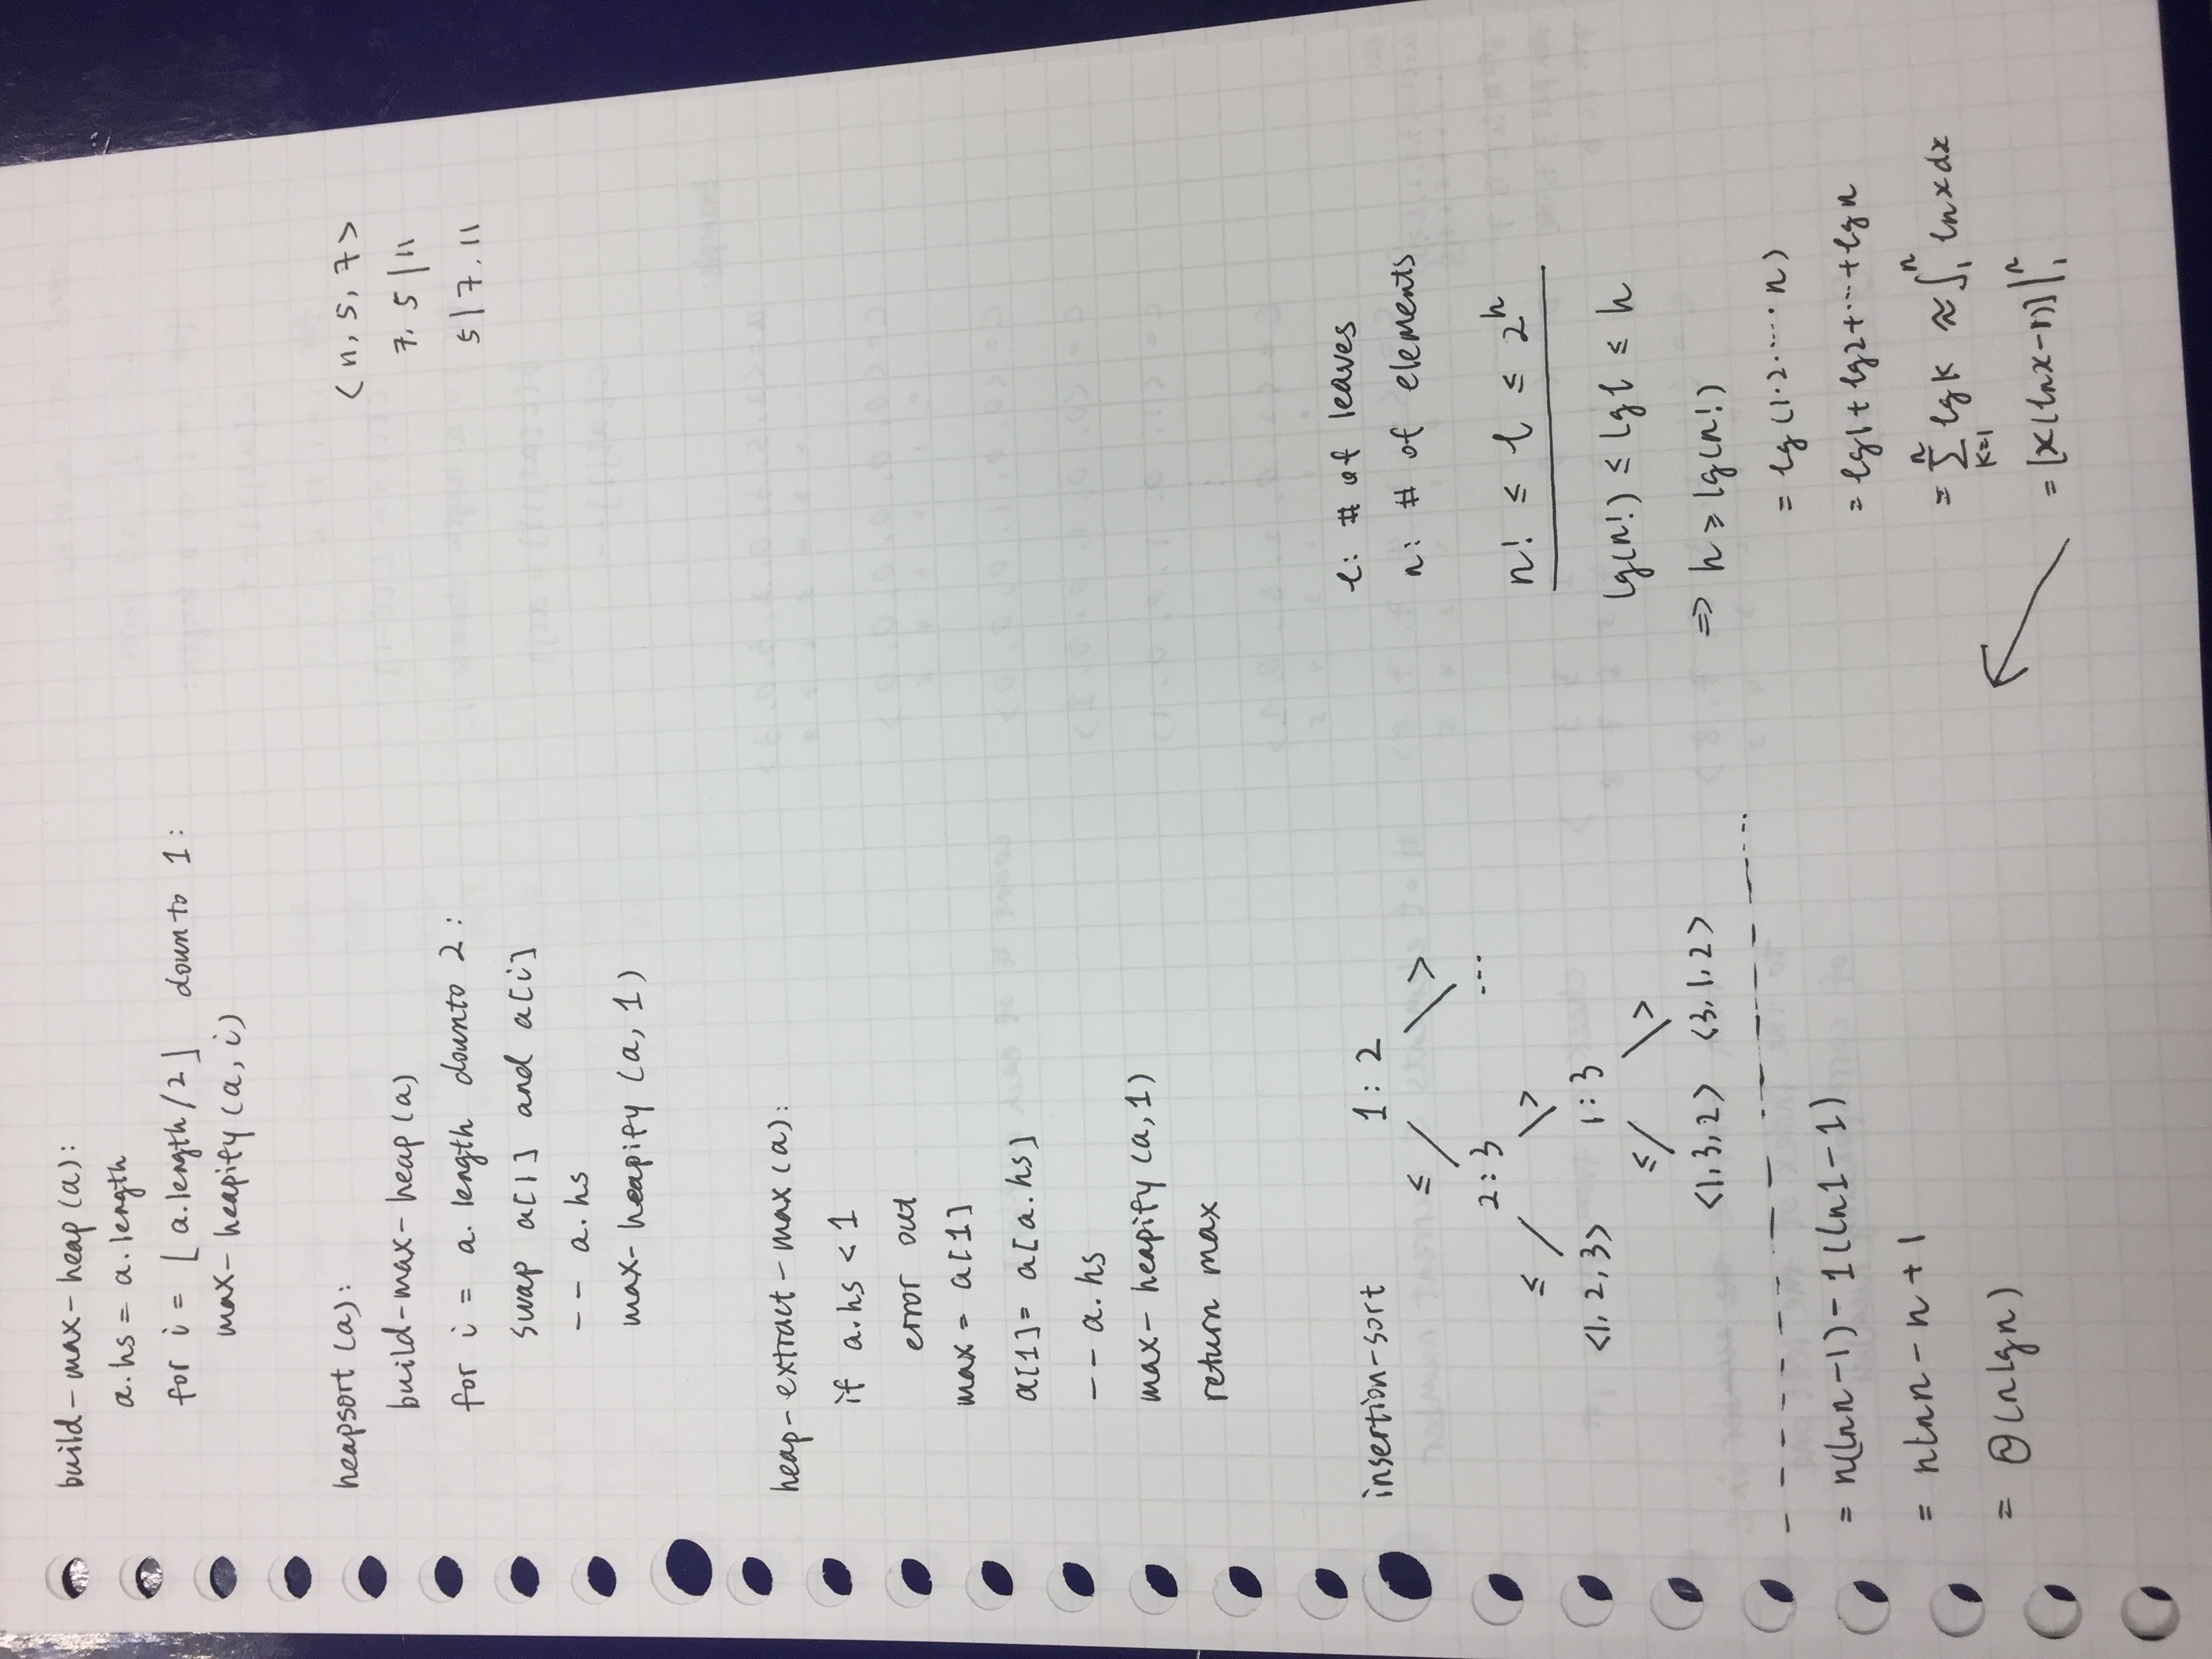 build-max-heap (a):
a.hs = a.length
for i = ⌊ a.length/2 ⌋ downto 1:
max-heapify (a, i)
heapsort (a):
build-max-heap (a)
for i = a.length downto 2:
swap a[1] and a[i]
-- a.hs
max-heapify (a, 1)
<11, 5, 7>
7, 5 | 11
5 | 7, 11
heap-extract-max (a):
if a.hs < 1
error out
max = a[1]
a[1] = a[a.hs]
-- a.hs
max-heapify (a, 1)
return max
insertion-sort
1 : 2
≤ >
2 : 3 ...
≤ >
<1, 2, 3> 1 : 3
≤ >
<1, 3, 2> <3, 1, 2>
ℓ: # of leaves
n: # of elements
n! ≤ ℓ ≤ 2^h
lg(n!) ≤ lg ℓ ≤ h
⇒ h ≥ lg(n!)
= lg (1·2·····n)
= lg1 + lg2 + ··· + lg n
= ∑_{k=1}^{n} lg k ≈ ∫_1^n ln x dx
= [x(ln x - 1)] |_1^n
= n(ln n - 1) - 1(ln 1 - 1)
= n ln n - n + 1
= Θ(n lg n)